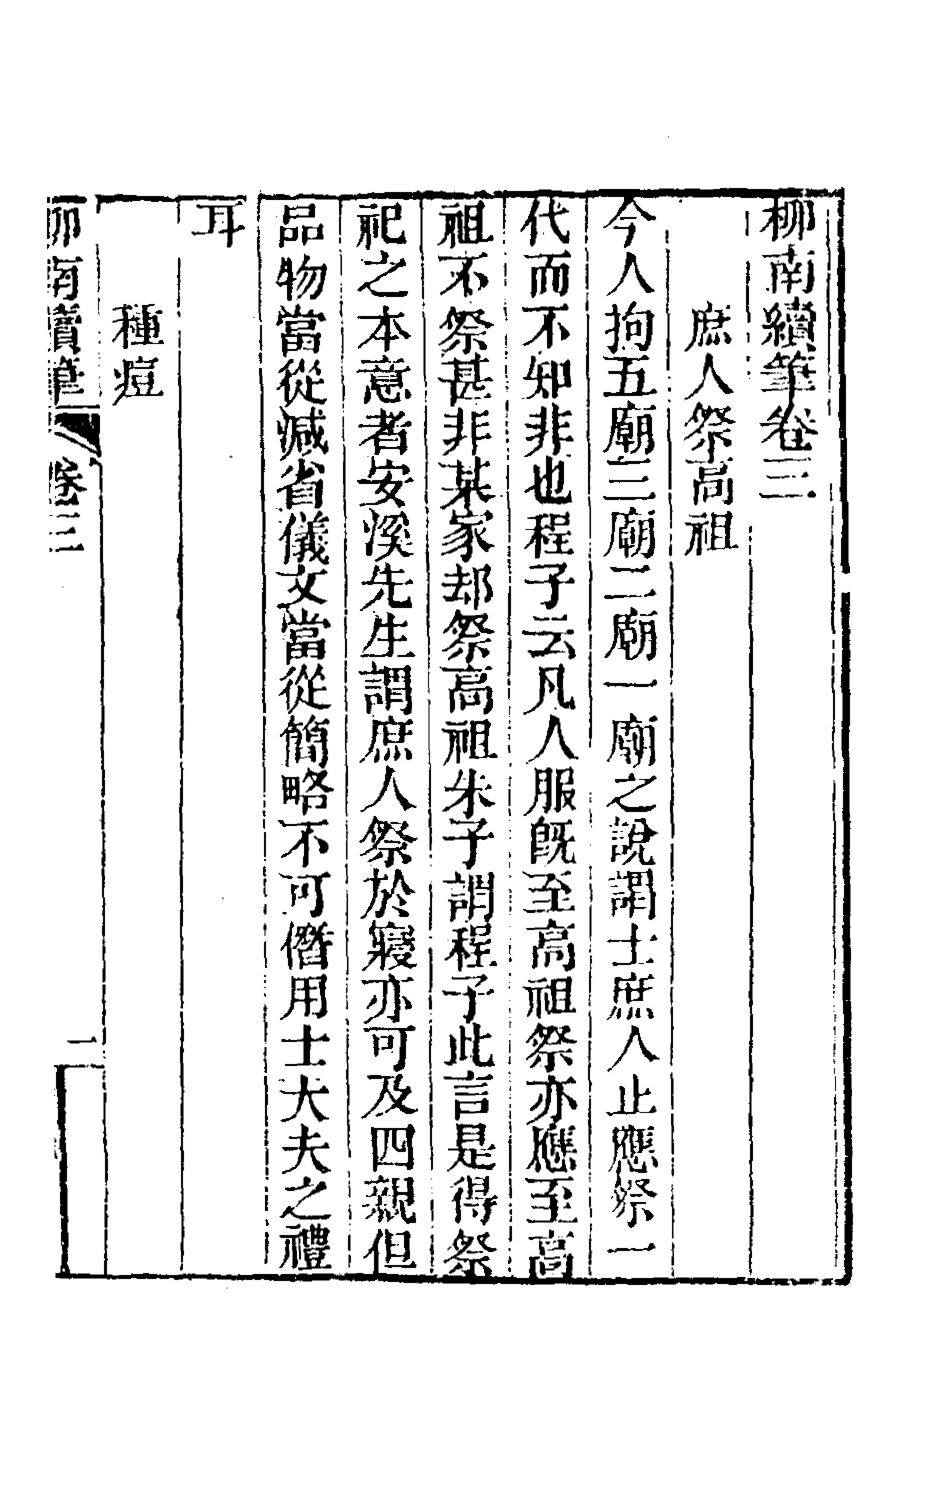 柳南續筆卷三
庶人祭高祖
今人拘五廟三廟二廟一廟之說謂士庶人止應祭一
代而不知非也程子云凡人服旣至高祖祭亦應至高
祖不祭甚非某家却祭高祖朱子謂程子此言是得祭
祀之本意者安溪先生謂庶人祭於寢亦可及四親但
品物當從減省儀文當從簡略不可僭用士大夫之禮
耳
種痘
柳南續筆 卷三 一